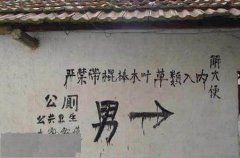 严禁带棍棒木叶草类入内
解大便
公厕
公共卫生
男